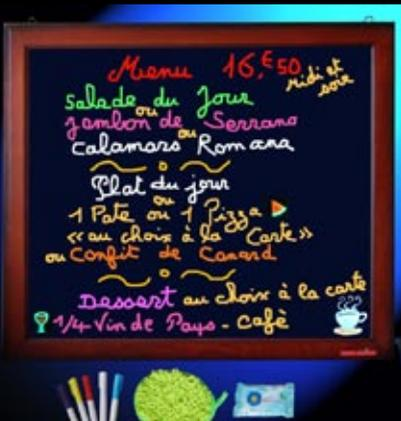 Menu 16,€50
midi et soir
Salade du Jour
ou
Jambon de Serrano
ou
Calamars Romana
Plat du jour
ou
1 Pate ou 1 Pizza
«au choix à la Carte»
ou Confit de Canard
Dessert au choix à la carte
1/4 Vin de Pays - Café